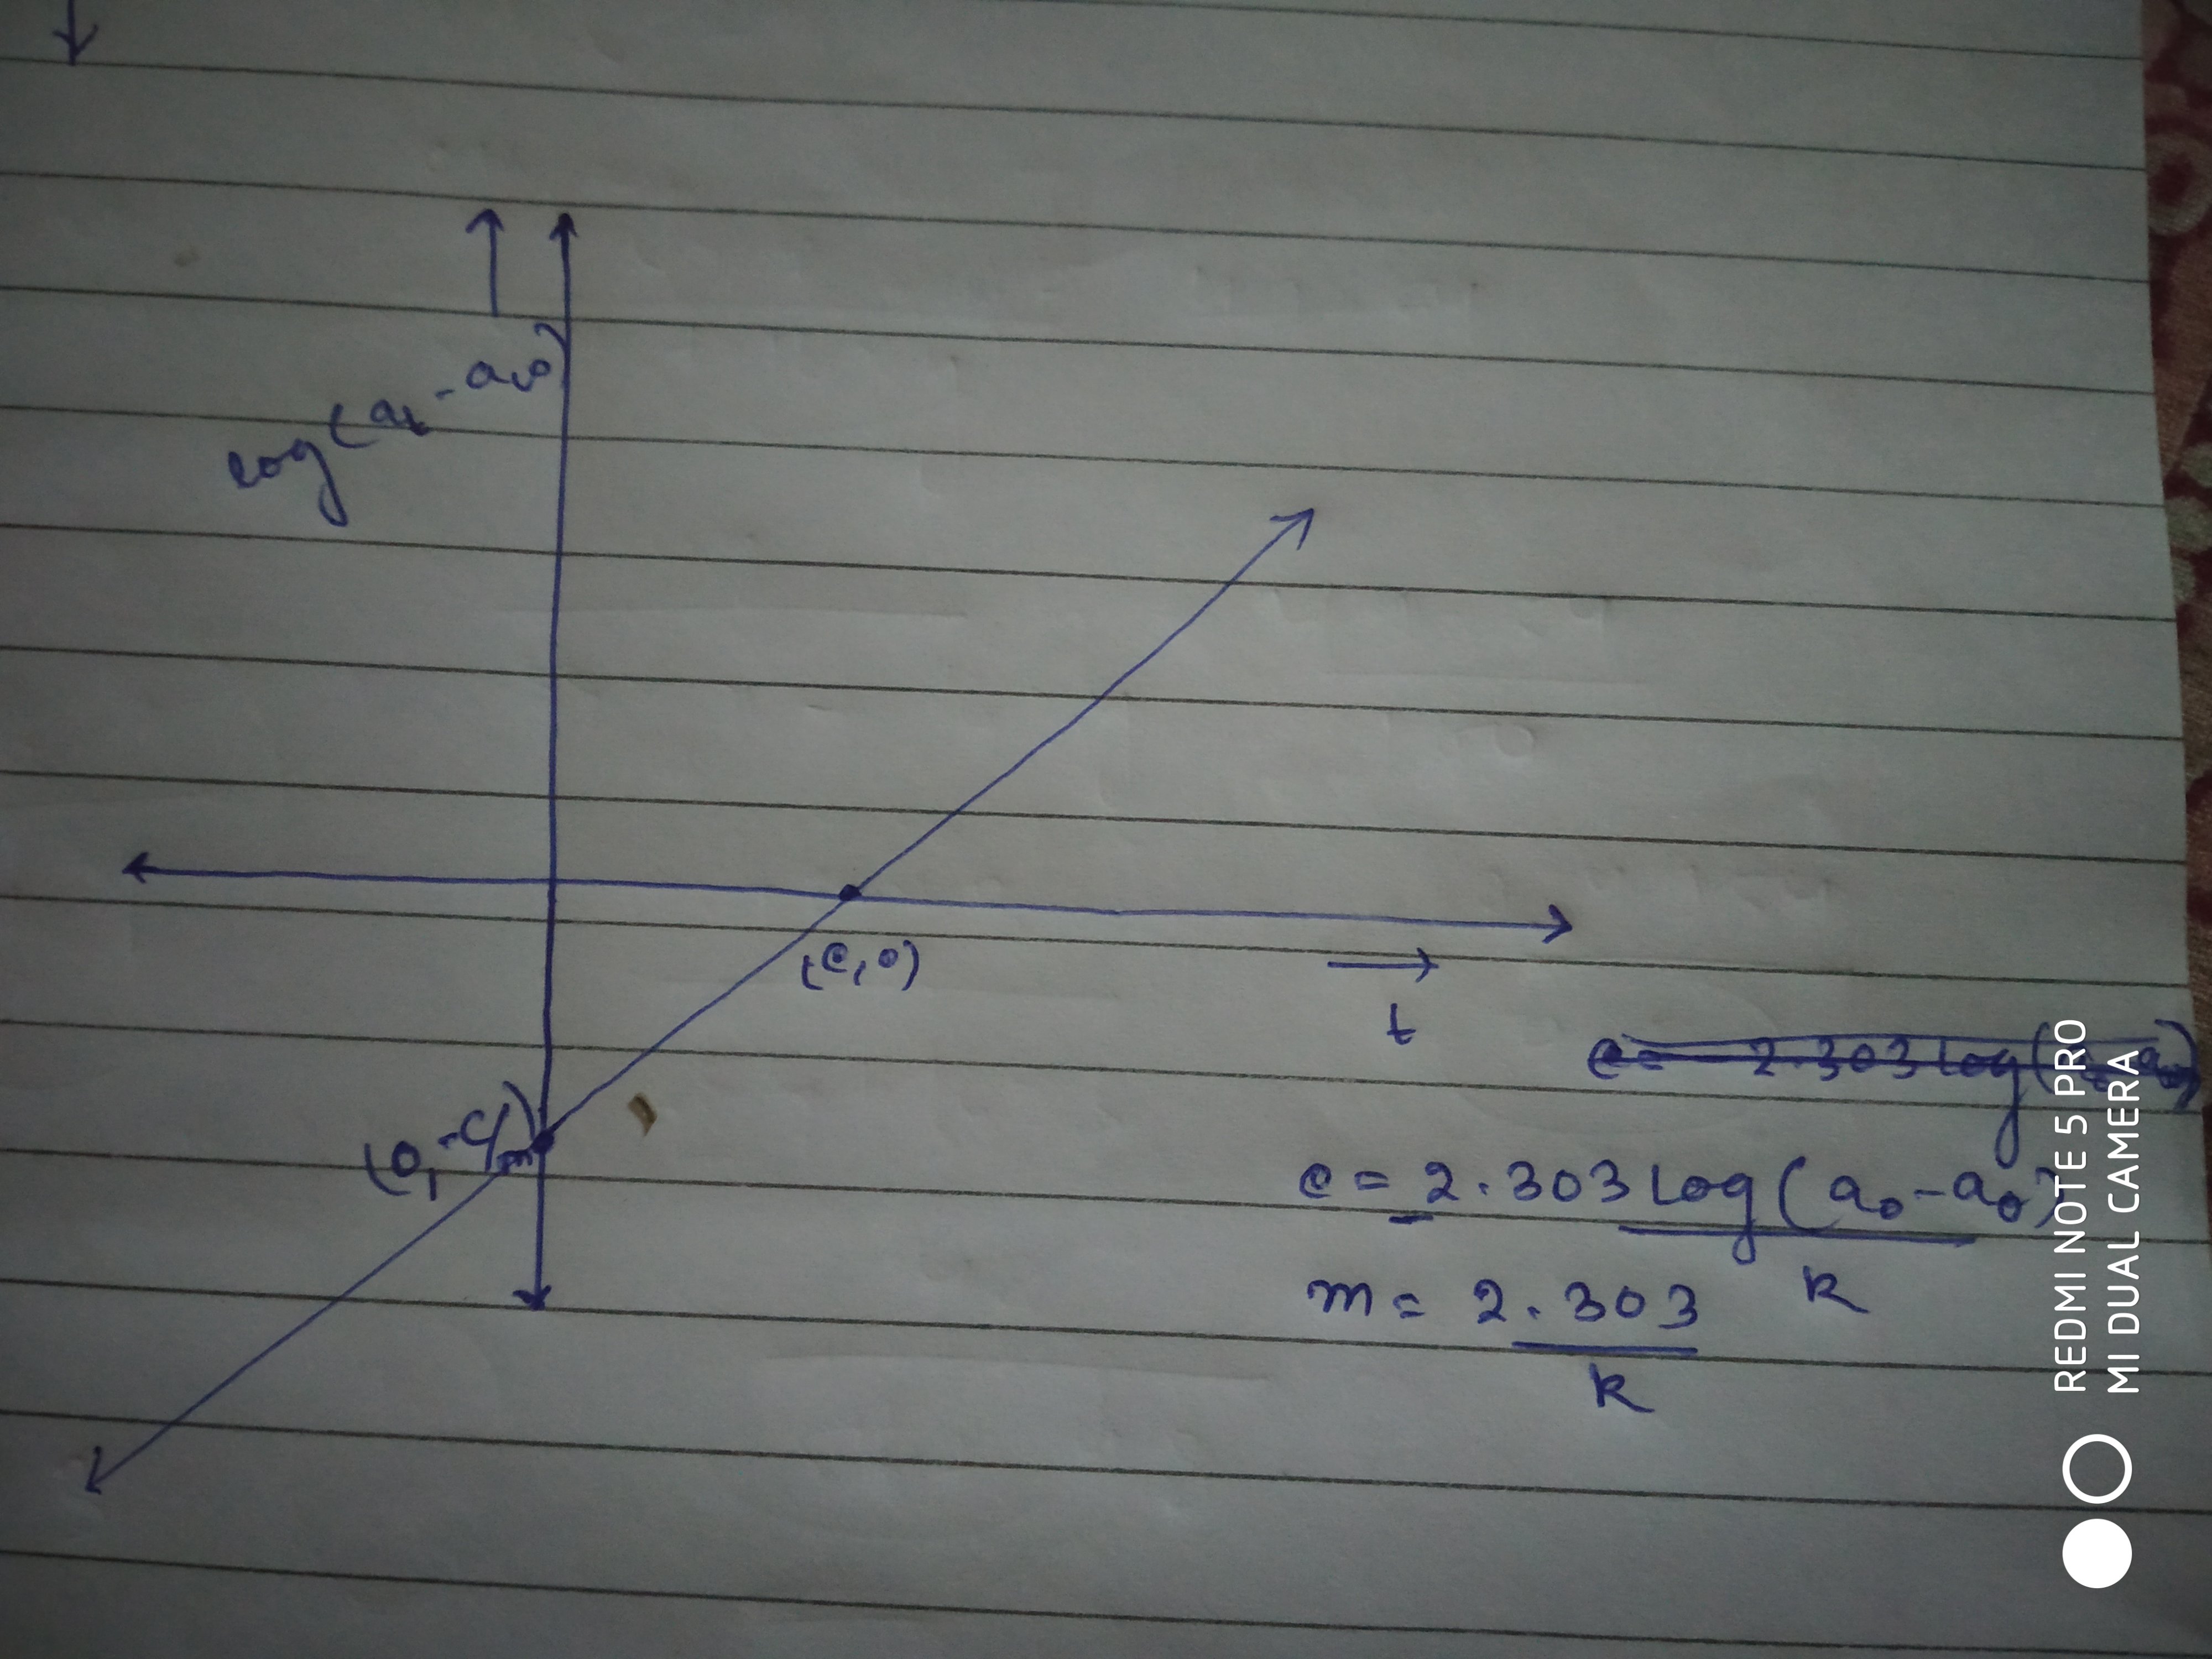 log(at - a∞)
(c, 0)
t
(0, -c/m)
c = 2.303 log(a₀ - a∞)
k
m = 2.303
k
REDMI NOTE 5 PRO
MI DUAL CAMERA